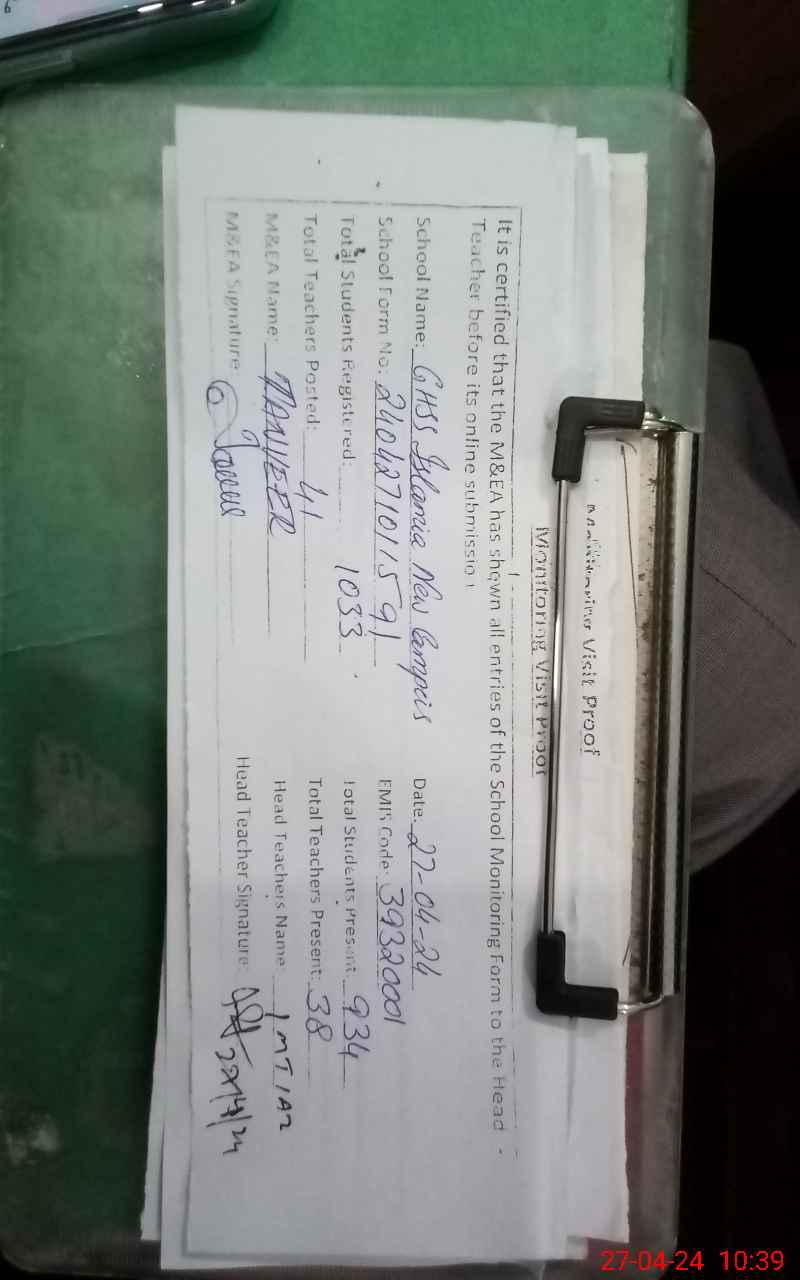 Monitoring Visit Proof
Monitoring Visit Proof
It is certified that the M&EA has shown all entries of the School Monitoring Form to the Head
Teacher before its online submission
School Name: GHSS Islamia New Campus Date: 27-04-24
School Form No: 2404271011591 EMIS Code: 39320001
Total Students Registered: 1033 Total Students Present: 934
Total Teachers Posted: 41 Total Teachers Present: 38
M&EA Name: TANVEER Head Teachers Name: IMTIAZ
M&EA Signature: Head Teacher Signature: 27/4/24
27-04-24 10:39